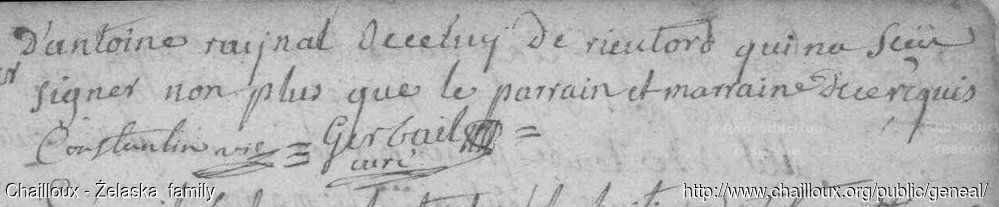 d'antoine raynal de celuy de rieutord qui na sceu
signer non plus que le parrain et marraine de ce requis
Constantin vic = Gerbail =
curé
Chailloux - Żelaska family
http://www.chailloux.org/public/geneal/